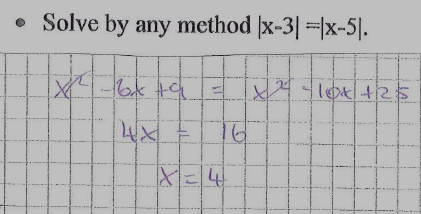 • Solve by any method |x-3| =|x-5|.
x² - 6x + 9 = x² - 10x + 25
4x = 16
x = 4